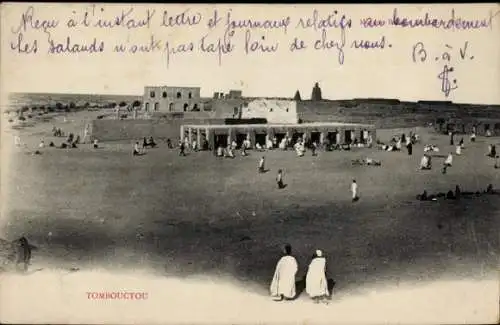 Reçu à l'instant lettre et journaux relatifs au bombardement
Les salauds n'ont pas tapé loin de chez nous.
B. à V.
TOMBOUCTOU